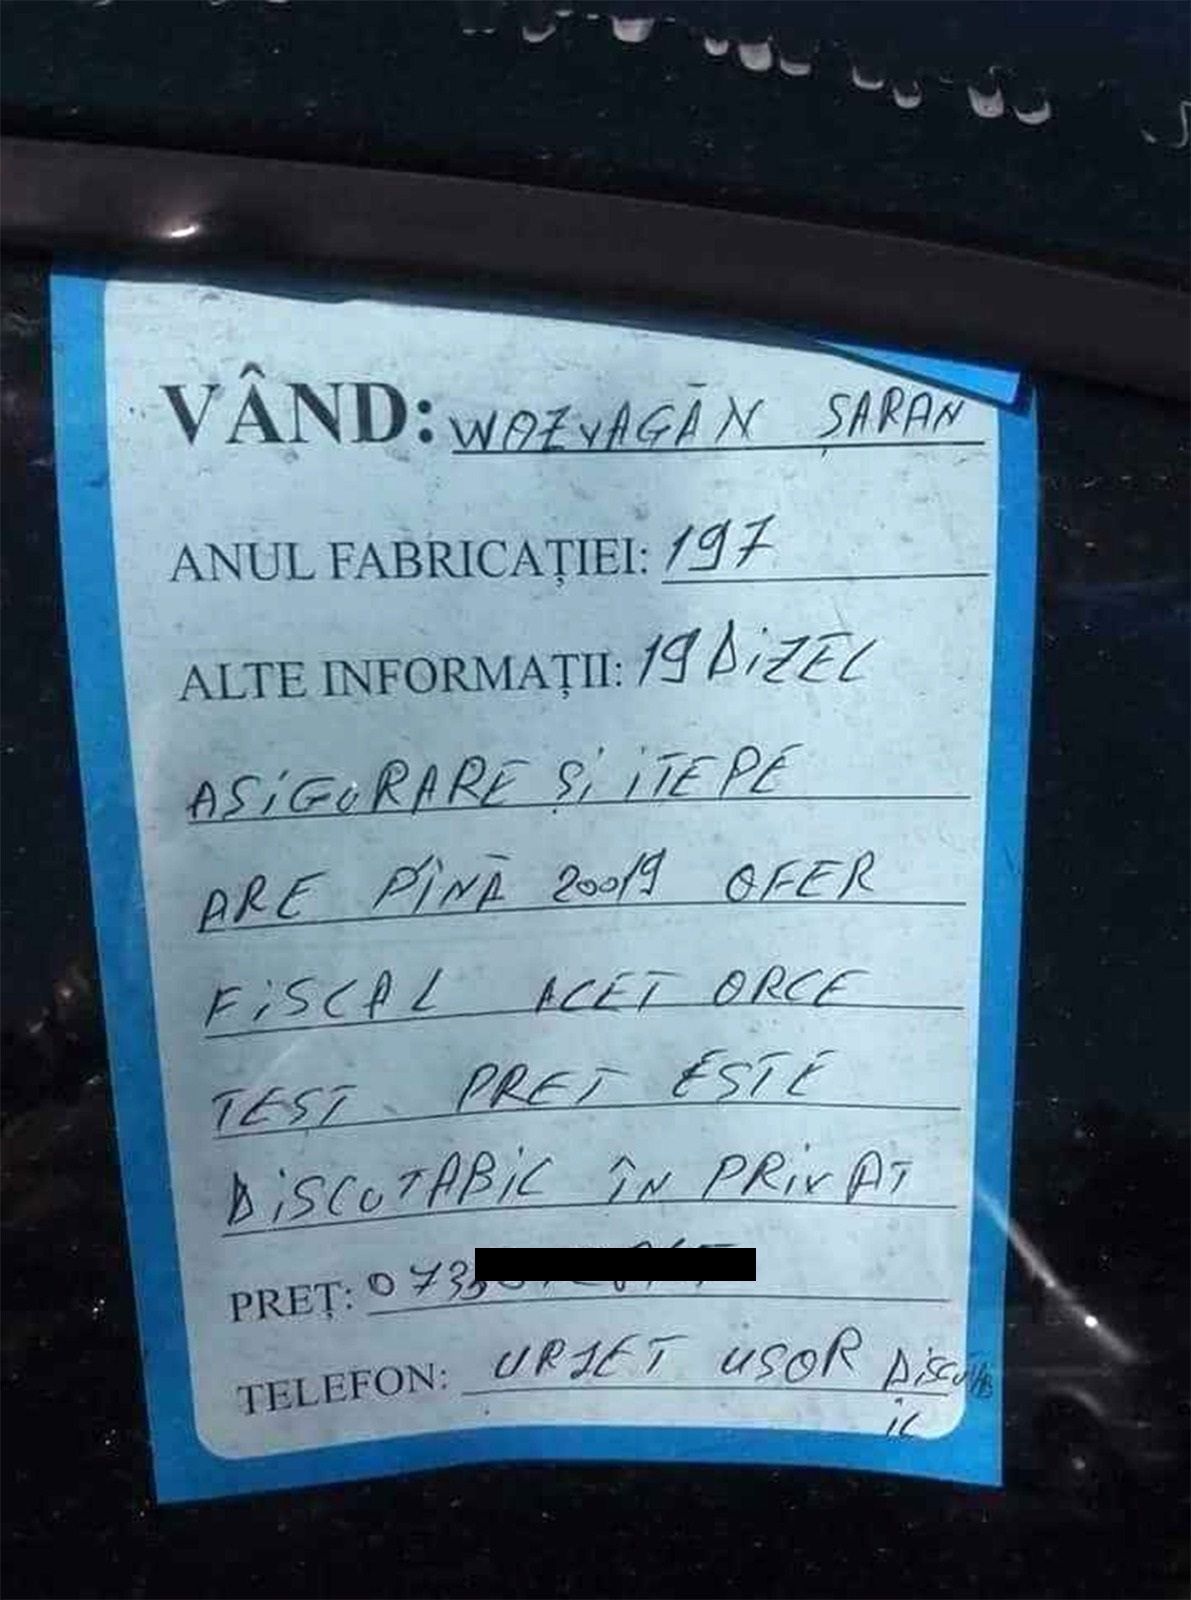 VÂND: WOZVAGĂN ȘARAN
ANUL FABRICAȚIEI: 197
ALTE INFORMAȚII: 19 DiZEL
ASiGURARE Și iTEPE
ARE PÎNĂ 20019 OFER
FiSCAL ACET ORCE
TEST PRET ESTE
DiSCUTABiL ÎN PRiVAT
PREȚ: 073
TELEFON: URJET USOR DiSCUTAB
iL